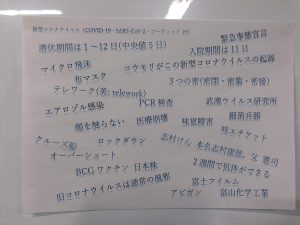 新型コロナウイルス (COVID-19・SARS-CoV-2・コーヴィッド 19)
緊急事態宣言
潜伏期間は1〜12日(中央値5日) 入院期間は11日
マイクロ飛沫 コウモリがこの新型コロナウイルスの起源
布マスク
3つの密(密閉・密集・密接)
テレワーク(英: telework)
エアロゾル感染 PCR 検査 武漢ウイルス研究所
細菌兵器
顔を触らない 医療崩壊 味覚障害
咳エチケット
クルーズ船 ロックダウン 志村けん 本名志村康徳、父 憲司
オーバーシュート
2週間で抗体ができる
BCG ワクチン 日本株
富士フイルム
旧コロナウイルスは通常の風邪
アビガン 富山化学工業